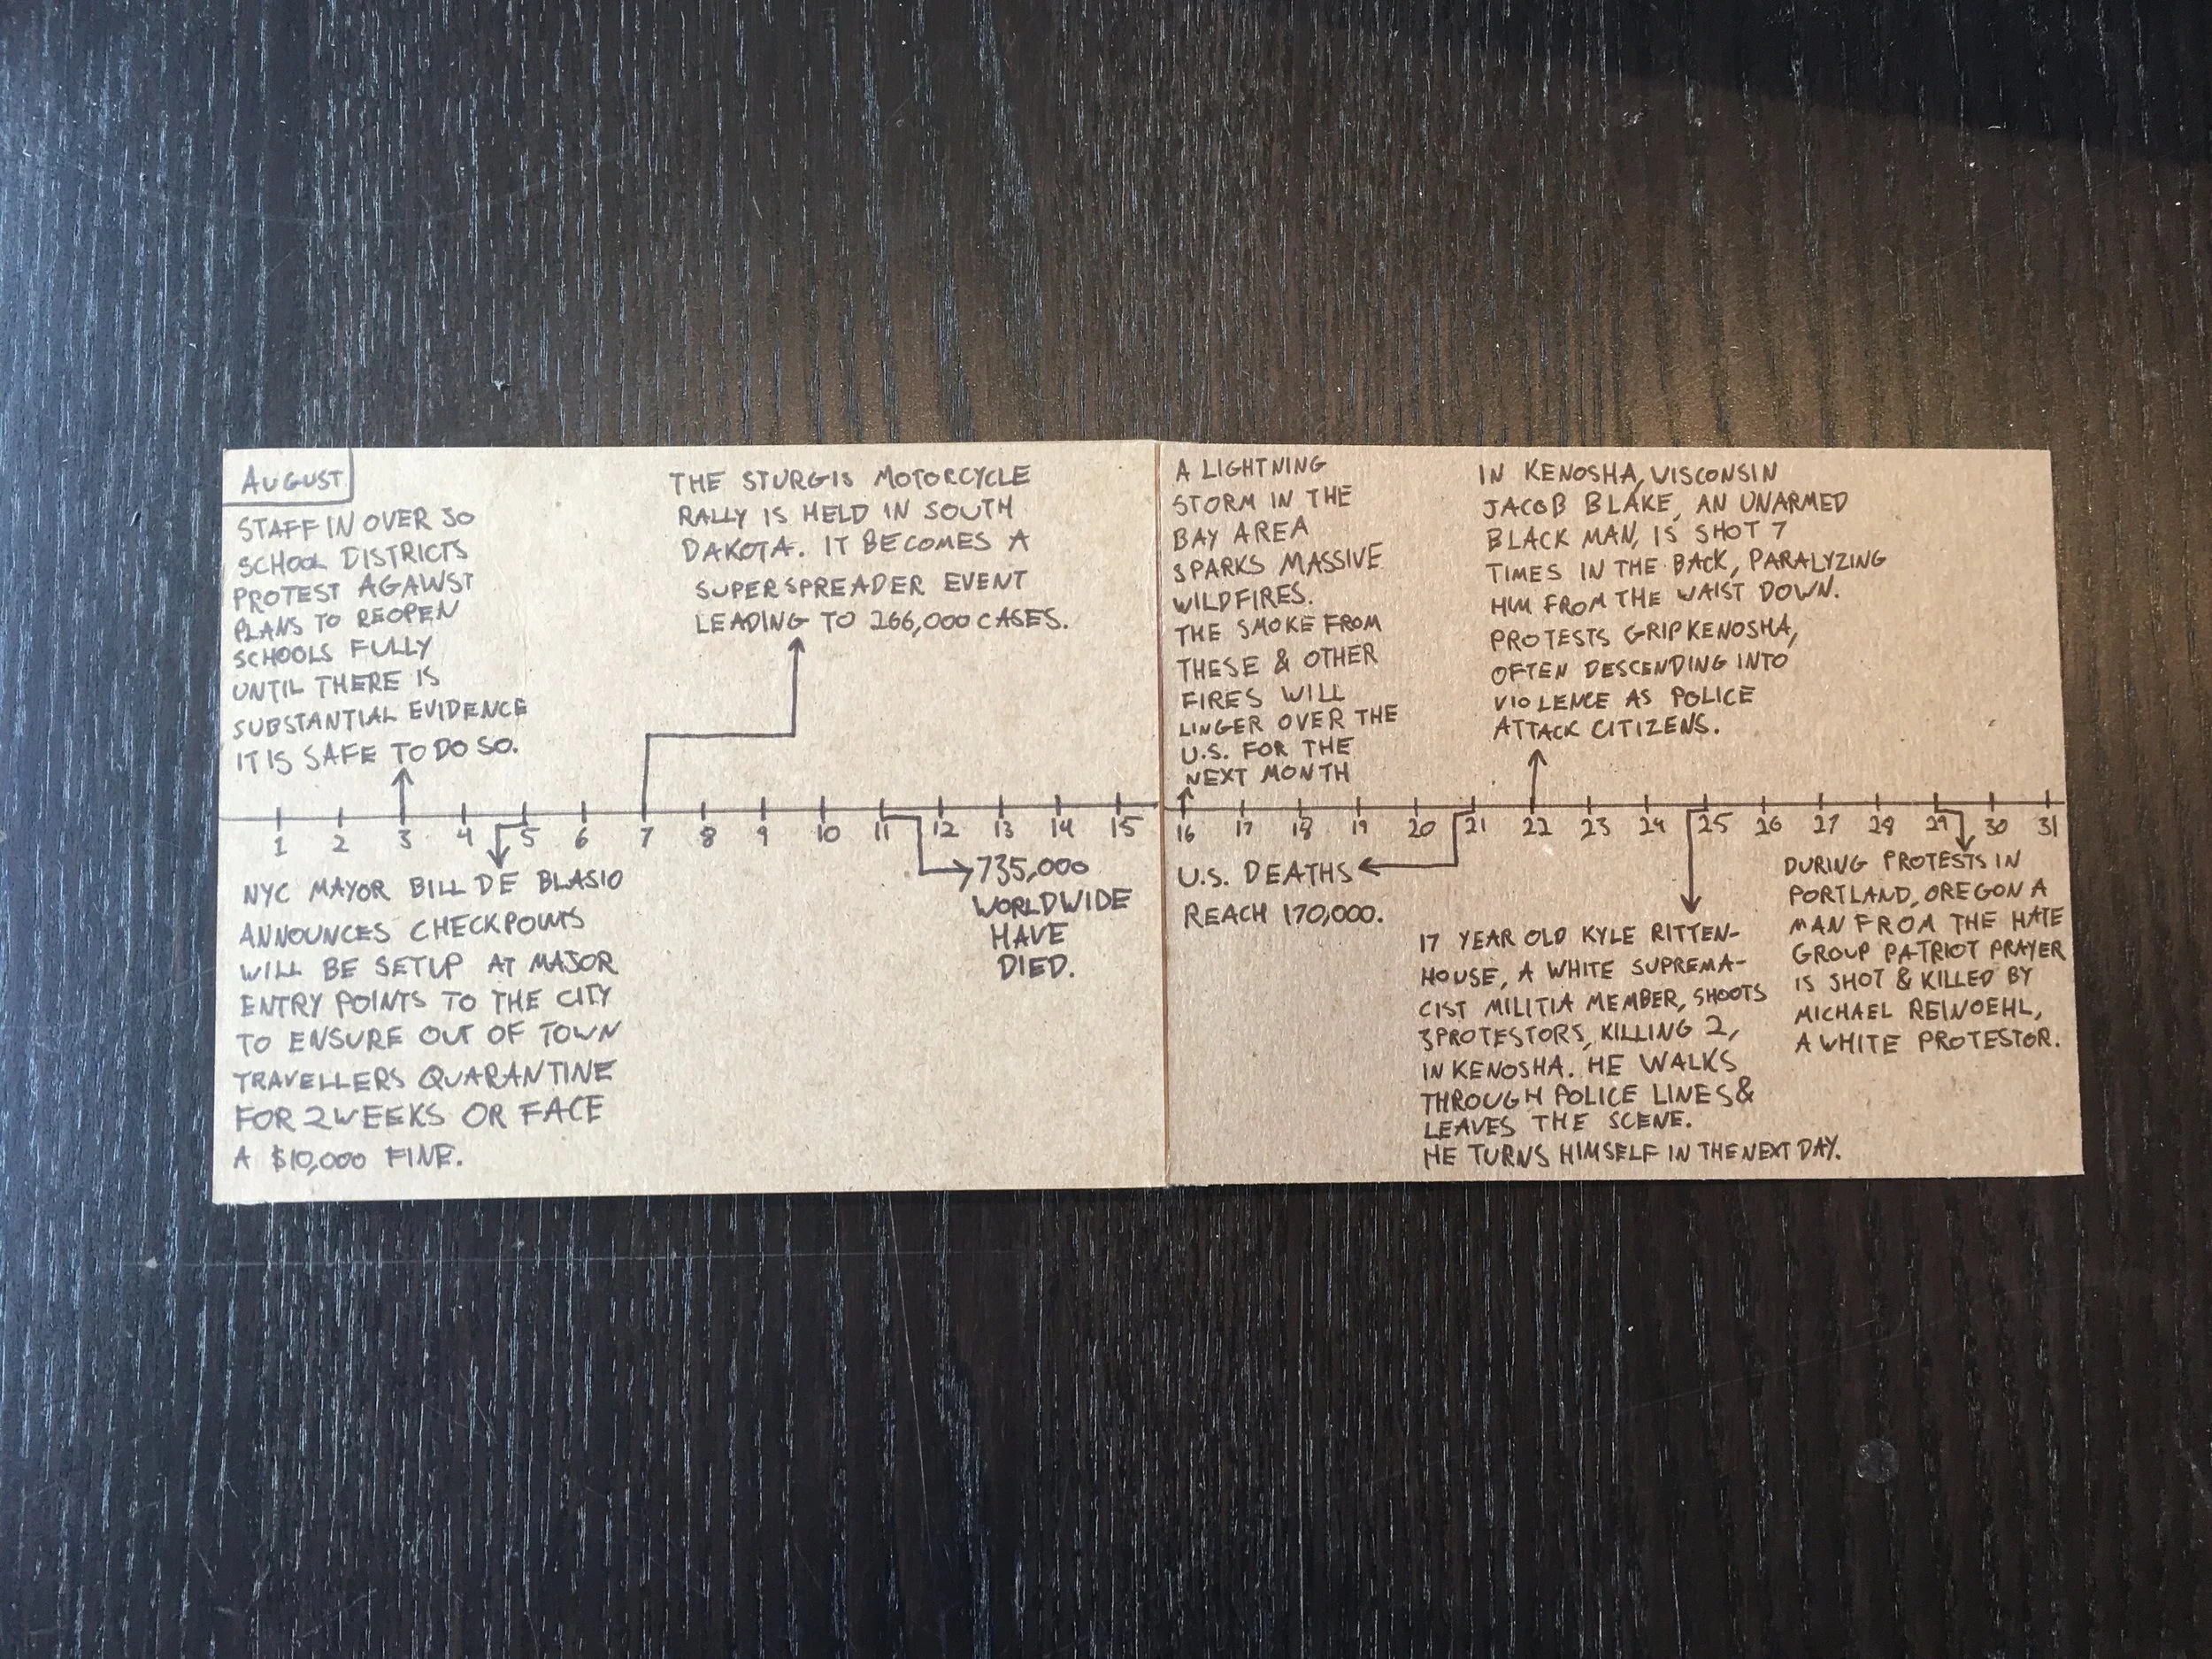 AUGUST
STAFF IN OVER 30
SCHOOL DISTRICTS
PROTEST AGAINST
PLANS TO REOPEN
SCHOOLS FULLY
UNTIL THERE IS
SUBSTANTIAL EVIDENCE
IT IS SAFE TO DO SO.
THE STURGIS MOTORCYCLE
RALLY IS HELD IN SOUTH
DAKOTA. IT BECOMES A
SUPERSPREADER EVENT
LEADING TO 266,000 CASES.
1 2 3 4 5 6 7 8 9 10 11 12 13 14 15
NYC MAYOR BILL DE BLASIO
ANNOUNCES CHECKPOINTS
WILL BE SETUP AT MAJOR
ENTRY POINTS TO THE CITY
TO ENSURE OUT OF TOWN
TRAVELLERS QUARANTINE
FOR 2 WEEKS OR FACE
A $10,000 FINE.
735,000
WORLDWIDE
HAVE
DIED.
A LIGHTNING
STORM IN THE
BAY AREA
SPARKS MASSIVE
WILDFIRES.
THE SMOKE FROM
THESE & OTHER
FIRES WILL
LINGER OVER THE
U.S. FOR THE
NEXT MONTH
IN KENOSHA, WISCONSIN
JACOB BLAKE, AN UNARMED
BLACK MAN, IS SHOT 7
TIMES IN THE BACK, PARALYZING
HIM FROM THE WAIST DOWN.
PROTESTS GRIP KENOSHA,
OFTEN DESCENDING INTO
VIOLENCE AS POLICE
ATTACK CITIZENS.
16 17 18 19 20 21 22 23 24 25 26 27 28 29 30 31
U.S. DEATHS
REACH 170,000.
17 YEAR OLD KYLE RITTEN-
HOUSE, A WHITE SUPREMA-
CIST MILITIA MEMBER, SHOOTS
3 PROTESTORS, KILLING 2,
IN KENOSHA. HE WALKS
THROUGH POLICE LINES &
LEAVES THE SCENE.
HE TURNS HIMSELF IN THE NEXT DAY.
DURING PROTESTS IN
PORTLAND, OREGON A
MAN FROM THE HATE
GROUP PATRIOT PRAYER
IS SHOT & KILLED BY
MICHAEL REINOEHL,
A WHITE PROTESTOR.